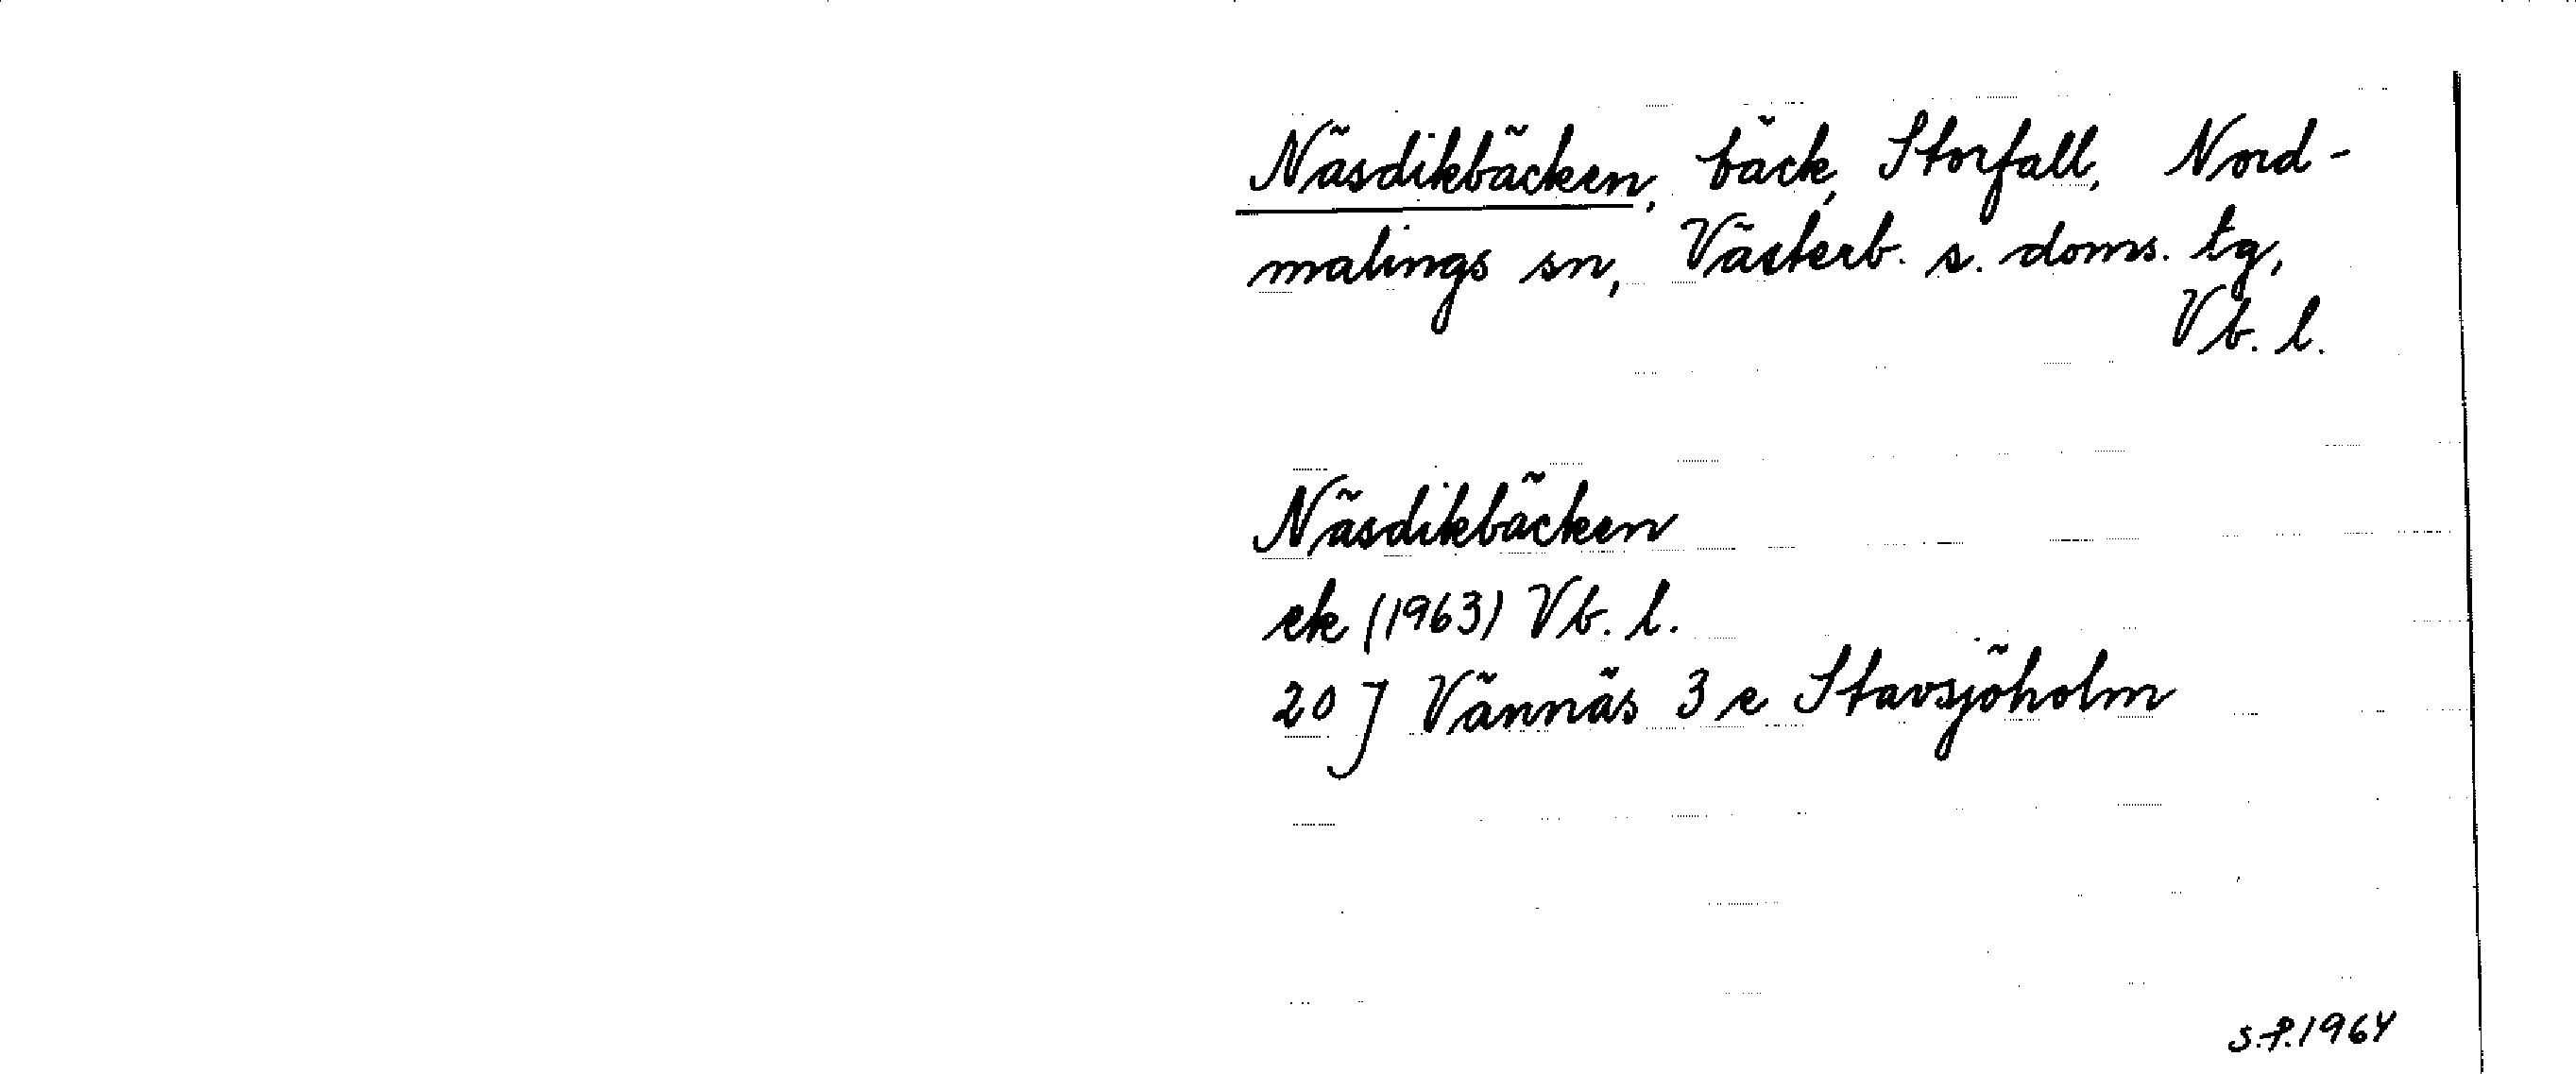 Näsdikbäcken, bäck, Storfall, Nord-
malings sn, Västerb. s. doms. tg,
Vb. l.
Näsdikbäcken
ek (1963) Vb. l.
20 J Vännäs 3 e Stavsjöholm
S.P. 1964